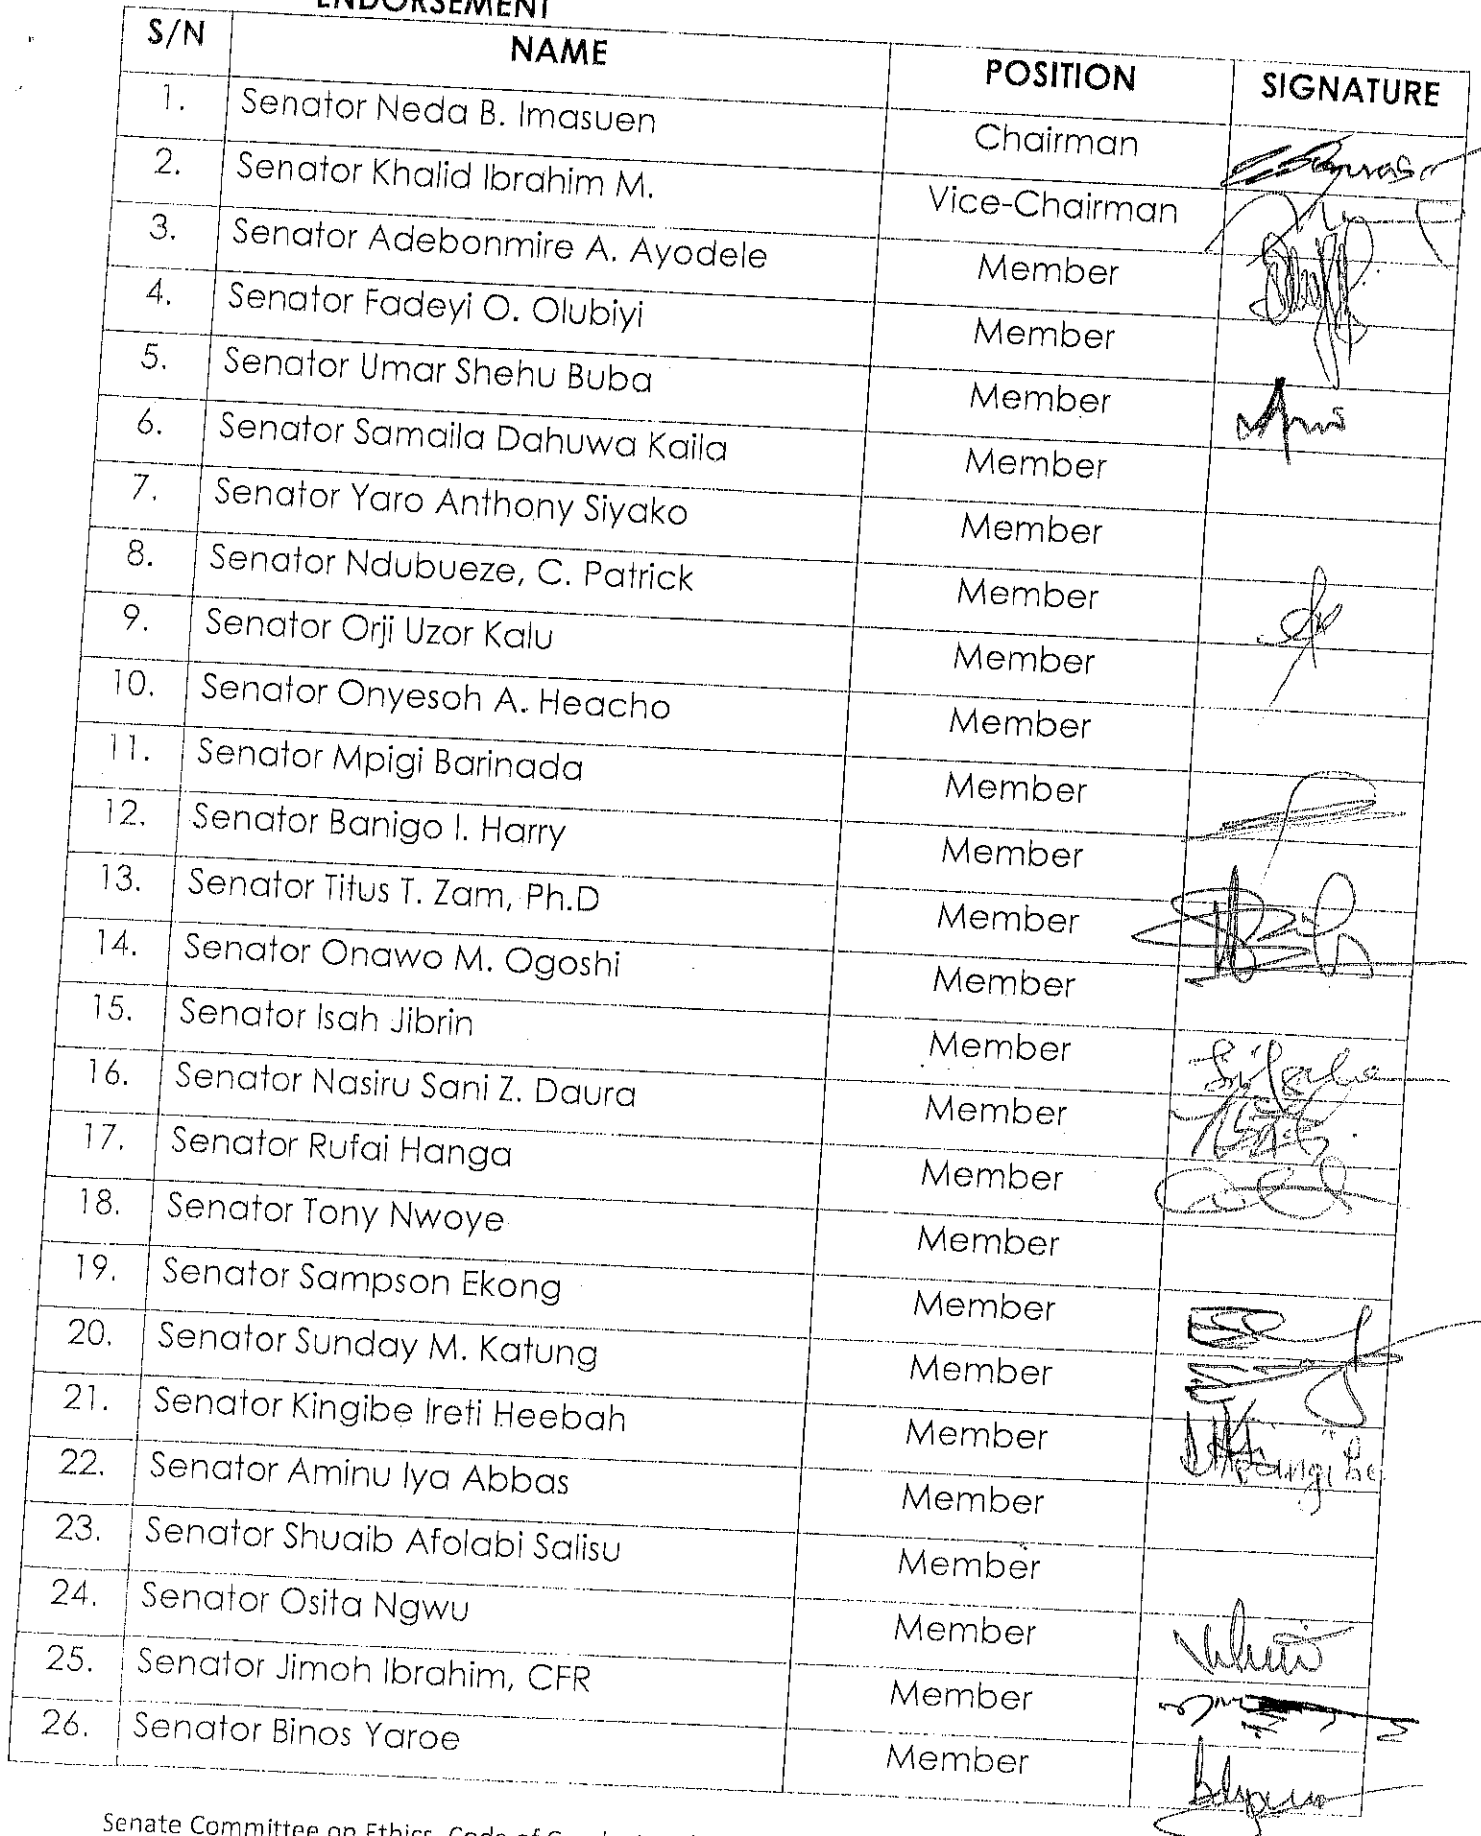 ENDORSEMENT
S/N NAME POSITION SIGNATURE
1. Senator Neda B. Imasuen Chairman
2. Senator Khalid Ibrahim M. Vice-Chairman
3. Senator Adebonmire A. Ayodele Member
4. Senator Fadeyi O. Olubiyi Member
5. Senator Umar Shehu Buba Member
6. Senator Samaila Dahuwa Kaila Member
7. Senator Yaro Anthony Siyako Member
8. Senator Ndubueze, C. Patrick Member
9. Senator Orji Uzor Kalu Member
10. Senator Onyesoh A. Heacho Member
11. Senator Mpigi Barinada Member
12. Senator Banigo I. Harry Member
13. Senator Titus T. Zam, Ph.D Member
14. Senator Onawo M. Ogoshi Member
15. Senator Isah Jibrin Member
16. Senator Nasiru Sani Z. Daura Member
17. Senator Rufai Hanga Member
18. Senator Tony Nwoye Member
19. Senator Sampson Ekong Member
20. Senator Sunday M. Katung Member
21. Senator Kingibe Ireti Heebah Member
22. Senator Aminu Iya Abbas Member
23. Senator Shuaib Afolabi Salisu Member
24. Senator Osita Ngwu Member
25. Senator Jimoh Ibrahim, CFR Member
26. Senator Binos Yaroe Member
Senate Committee on Ethics, Code of